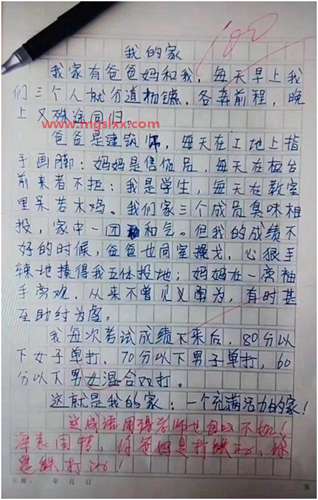 100
我的家
我家有爸爸妈和我，每天早上我
们三个人就分道扬镳，各奔前程，晚
上又殊途同归。
www.mgslxx.com
爸爸是建筑师，每天在工地上指
手画脚；妈妈是售货员，每天在柜台
前来者不拒；我是学生，每天在教室
里呆若木鸡。我们家三个成员臭味相
投，家中一团和气。但我的成绩不
好的时候，爸爸也同室操戈，心狠手
辣地揍得我五体投地；妈妈在一旁袖
手旁观，从来不曾见义勇为，有时甚
在助纣为虐。
我每次考试成绩下来后，80分以
下女子单打，70分以下男子单打，60
分以下男女混合双打。
这就是我的家：一个充满活力的家！